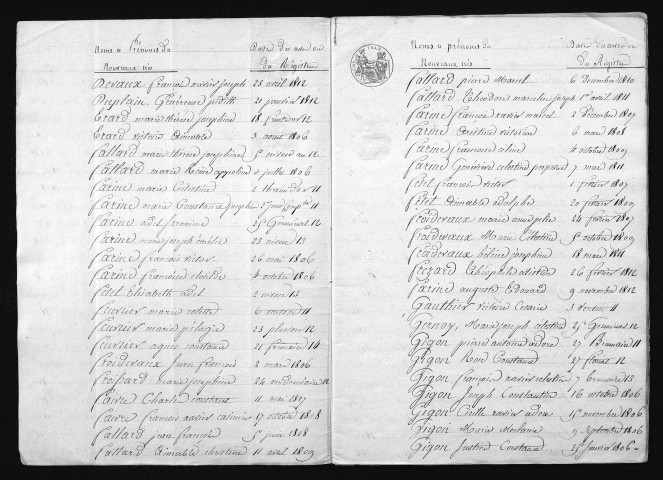 Noms et Prénoms du Date des actes ou
Nouveaux nés du Registre
Devaux françois xavier joseph 23 avril 1812
Duplain Généreuse judith 21 janvier 1812
Erard marie thérèse josephine 18
Erard victoire aimable 3 aout 1806
fallard marie thérèse josephine 12
fallard marie Reine appoline 2 juillet 1806
farine marie Celestine 2 thermidor 11
farine marie Constance josephe 11
farine adel 25 Germinal 12
farine marie joseph émélie 23 nivose 13
farine françois victor 26 mai 1806
farine françoise clotilde 4 octobre 1806
fétel Elisabeth adel 2 nivose 13
feuvrier marie colette 6 11
feuvrier marie pélagie 23 pluviose 12
feuvrier agnès constance 21 frimaire 14
froidevaux jean françois 2 mars 1806
frossard marie josephine 24 vendémiaire 12
faivre Charles constant 11 mai 1807
faivre françois xavier casimir 17 octobre 1808
fallard jean françois 5 juin 1808
fallard aimable christine 11 avril 1809
Noms et prénoms du Date des actes ou
Nouveaux nés du Registre
fallard pierre Marcel 6 Decembre 1810
fallard Théodore marcelin joseph 1er avril 1811
farine francois xavier marcel 2 décembre 1807
farine victoire 6 mars 1808
farine françoise celine 4 octobre 1809
farine Généreuse celestine 7 mai 1811
fétel françois victor 1 février 1807
fétel Aimable adolphe 20 février 1809
froidevaux marie 24 février 1807
froidevaux Marie Célestine 5 octobre 1809
froidevaux josephine 18 mars 1811
frezard Théophile 26 février 1812
farine auguste Edouard 9 novembre 1812
Gauthier victoire Césarie 3 ventose 11
Gernoy, Marie joseph celestine 25 Germinal 12
Gigon pierre antoine 27 Brumaire 11
Gigon René Constant 27 floréal 12
Gigon françois xavier celestin 7 brumaire 13
Gigon Joseph Constantin 16 octobre 1806
Gigon xavier 15 novembre 1806
Gigon Marie Mélanie 9 Septembre 1806
Gigon Justine Constance 25 janvier 1806